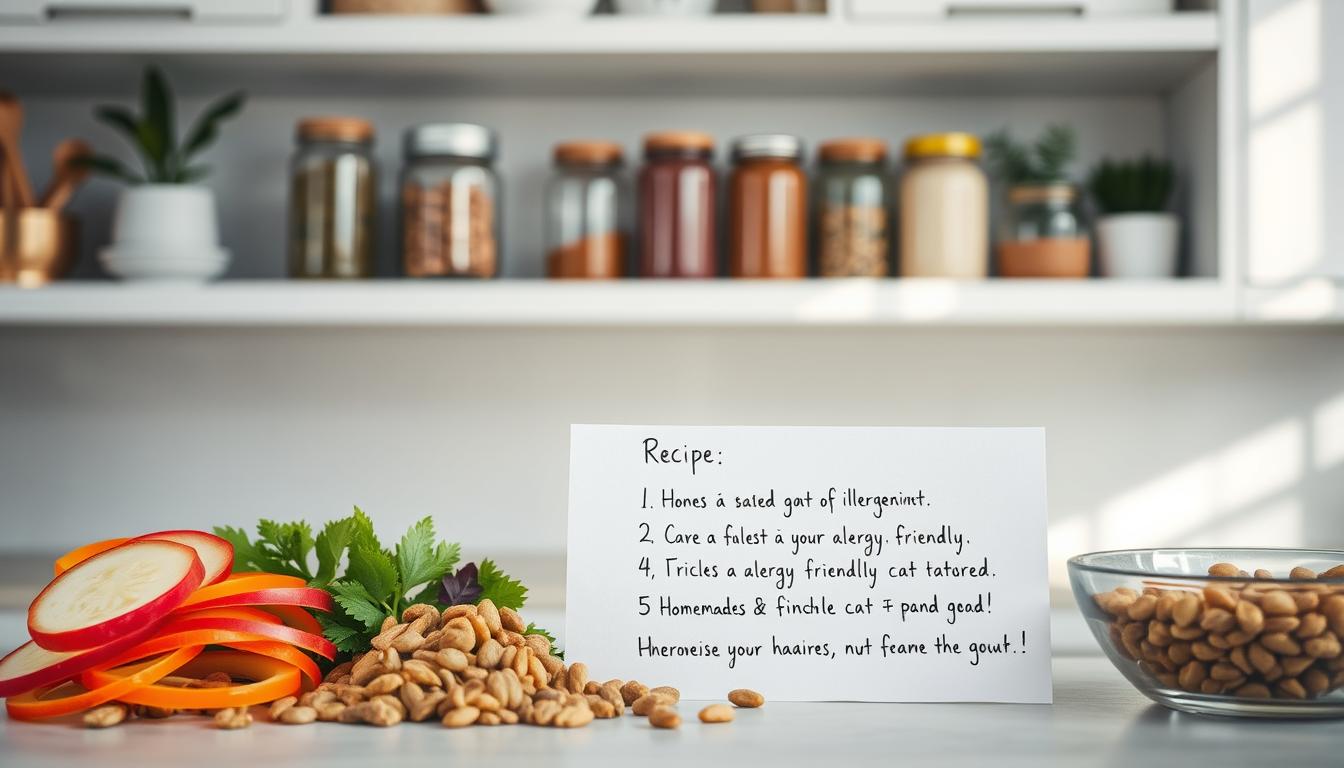 Recipe:
1. Hones á saled goat of illergenint.
2. Care a falest à your allergy. friendly.
4, Tricles a alergy friendlly cat tatored.
5 Homemades & finchle cat & pand gead!
Hneroveise your haaires, nut feane the gout.!